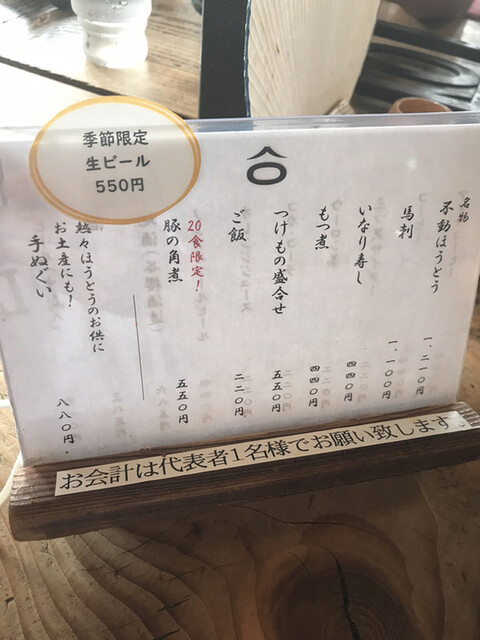 季節限定
生ビール
550円
名物
不動ほうとう 一、二一〇円
馬刺 一、一〇〇円
いなり寿し 四四〇円
もつ煮 四四〇円
つけもの盛合せ 五五〇円
ご飯 二二〇円
20食限定!
豚の角煮 五五〇円
熱々ほうとうのお供に
お土産にも!
手ぬぐい 八八〇円
お会計は代表者1名様でお願い致します